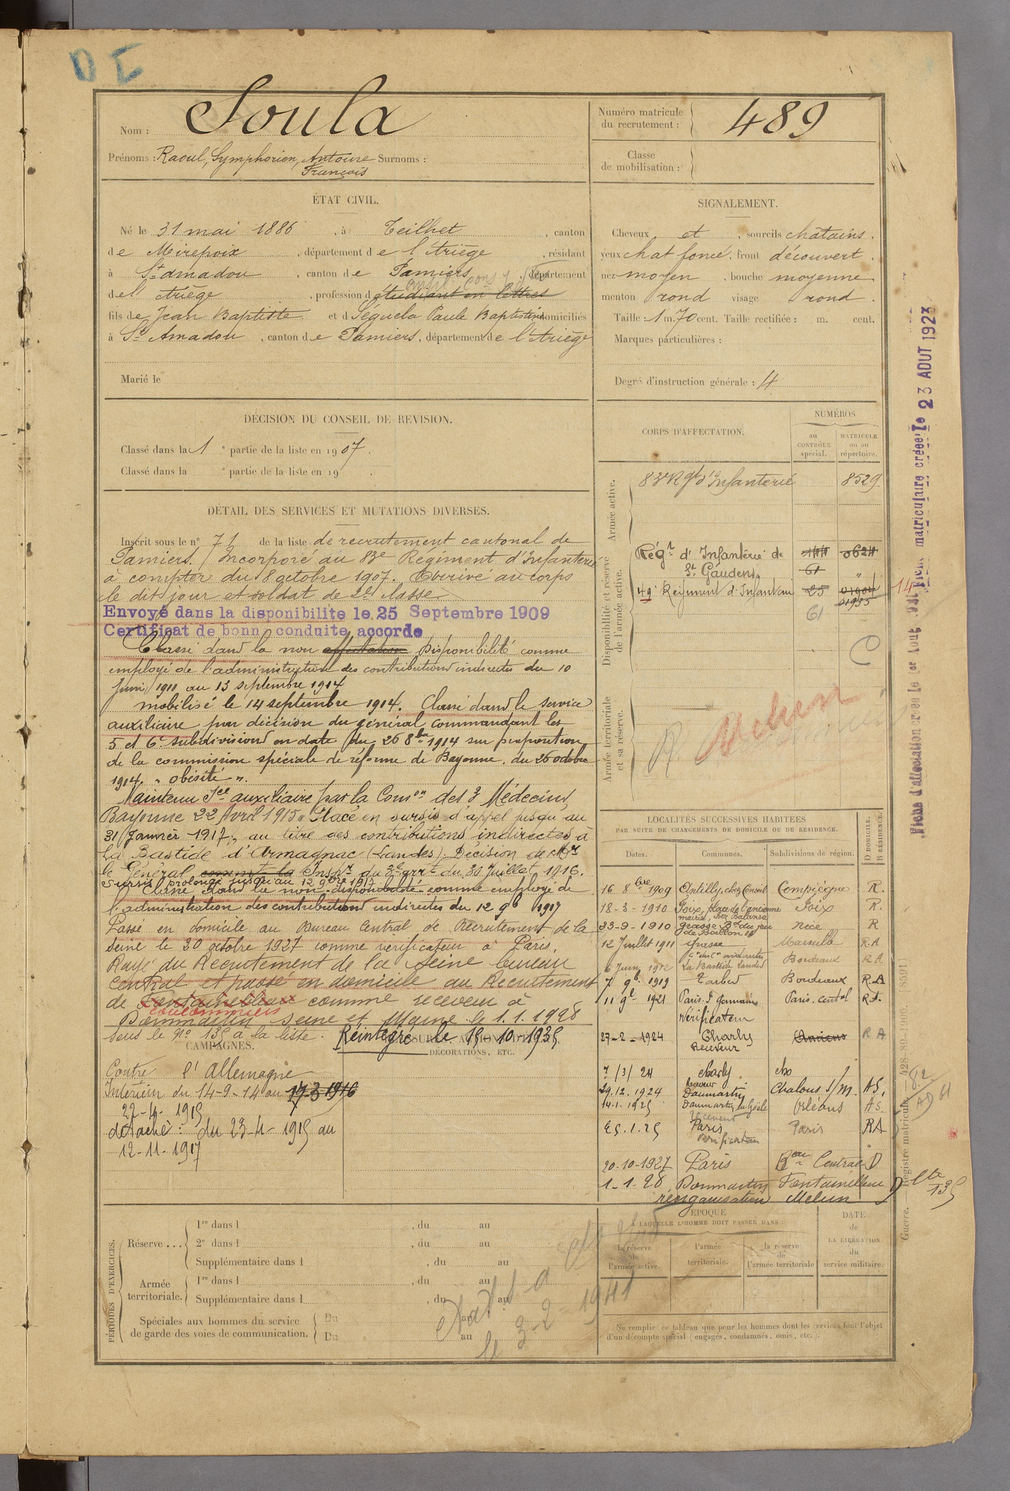 DE
Nom : Soula
Prénoms : Raoul, Symphorien, Antoine Surnoms :
François
Numéro matricule du recrutement : 489
Classe de mobilisation :
ÉTAT CIVIL.
Né le 31 mai 1886 , à Teilhet , canton
de Mirepoix , département de l'Ariège , résidant
à St Amadou , canton de Pamiers , département
del Ariège , profession d'étudiant en lettres
fils de Jean Baptiste et d Séguéla Paule Baptistine domiciliés
à St Amadou , canton de Pamiers , département de l'Ariège
Marié le
SIGNALEMENT.
Cheveux et , sourcils chatains .
yeux chat foncé , front découvert .
nez moyen , bouche moyenne
menton rond visage rond .
Taille : 1 m. 70 cent. Taille rectifiée : m. cent.
Marques particulières :
Degré d'instruction générale : 4
DÉCISION DU CONSEIL DE RÉVISION.
Classé dans la 1 partie de la liste en 1907 .
Classé dans la partie de la liste en 19
CORPS D'AFFECTATION.
NUMÉROS
AU CONTRÔLE spécial.
MATRICULE ou au répertoire.
Armée active.
83e Rgt d'Infanterie 8529
Disponibilité et réserve de l'armée active.
Régt d'Infanterie de
St Gaudens
61
49e Régiment d'Infanterie
61
Armée territoriale et sa réserve.
R Melun
DÉTAIL DES SERVICES ET MUTATIONS DIVERSES.
Inscrit sous le n° 71 de la liste de recrutement cantonal de
Pamiers. Incorporé au 83e Régiment d'Infanterie
à compter du 8 octobre 1907. Arrivé au corps
le dit jour et soldat de 2e classe
Envoyé dans la disponibilité le 25 Septembre 1909
Certificat de bonne conduite accordé
Classé dans la non affectation Disponibilité comme
employé de l'administration des contributions indirectes du 10
Juin 1911 au 13 septembre 1914
mobilisé le 14 septembre 1914. Classé dans le service
auxiliaire par décision du général commandant les
5 et 6e subdivisions en date du 26 8bre 1914 sur proposition
de la commission spéciale de réforme de Bayonne, du 26 octobre
1914. " obésité ".
Maintenu Sce auxiliaire par la Comon des 3 Médecins
Bayonne 22 Avril 1915. Placé en sursis d'appel jusqu'au
31 Janvier 1917, au titre des contributions indirectes à
La Bastide d'Armagnac (Landes). Décision de Mr
le Général
Sursis prolongé jusqu'au 12 9bre 1917
Classé dans la non-disponibilité comme employé de
l'administration des contributions indirectes du 12 9b 1917
Passé en domicile au Bureau Central de Recrutement de la
Seine le 20 octobre 1927 comme vérificateur à Paris.
Rayé du Recrutement de la Seine bureau
central et passé en domicile au Recrutement
de Fontainebleau comme receveur à
Coulommiers
Dammartin Seine et Marne le 1.1.1928
sous le No 135 à la liste. Réintégré le 15-10-1935
LOCALITÉS SUCCESSIVES HABITÉES
PAR SUITE DE CHANGEMENTS DE DOMICILE OU DE RÉSIDENCE.
Dates. Communes. Subdivisions de région. D DOMICILE. R RÉSIDENCE.
16 8bre 1909 Compiègne R.
18-3-1910 Foix, Foix R.
23-9-1910 Grasse Nice R
12 juillet 1911 Grasse Marseille R.A
6 Juin 1912 La Bastide Landes Bordeaux R.A
7 9b 1919 Tarbes Bordeaux R.A
11 9b 1921 Paris St Germain Paris. central R.A.
Vérificateur
27-2-1924 Charly Amiens R A
Receveur
7/3/24 Charly
29.12.1924 Dammartin Chalons s/M. AS.
14.1.1925 Orléans AS
25.1.25 Paris Paris RA
vérificateur
20-10-1927 Paris Bau Central D
1-1-28 Dammartin Fontainebleau D
réorganisation Melun
CAMPAGNES.
Contre l'Allemagne
Intérieur du 14-9-14 au 17-3 1916
22-4-1915
détaché : du 23-4-1915 au
12-11-1917
DÉCORATIONS, ETC.
PÉRIODES D'EXERCICES.
Réserve . . . 1re dans l , du au
2e dans l , du au
Supplémentaire dans l , du au
Armée territoriale. 1re dans l , du au
Supplémentaire dans l , du au
Spéciales aux hommes du service de garde des voies de communication. Du au
Du au
le 3-2-1941
ÉPOQUE
À LAQUELLE L'HOMME DOIT PASSER DANS :
la réserve de l'armée active.
l'armée territoriale.
la réserve de l'armée territoriale
DATE de LA LIBÉRATION du service militaire.
Se remplir ce tableau que pour les hommes dont les services font l'objet
d'un décompte spécial (engagés, condamnés, omis, etc.).
Fiche d'affectation créée le 1er Août 1931
Fiche matriculaire créée le 23 AOUT 1923